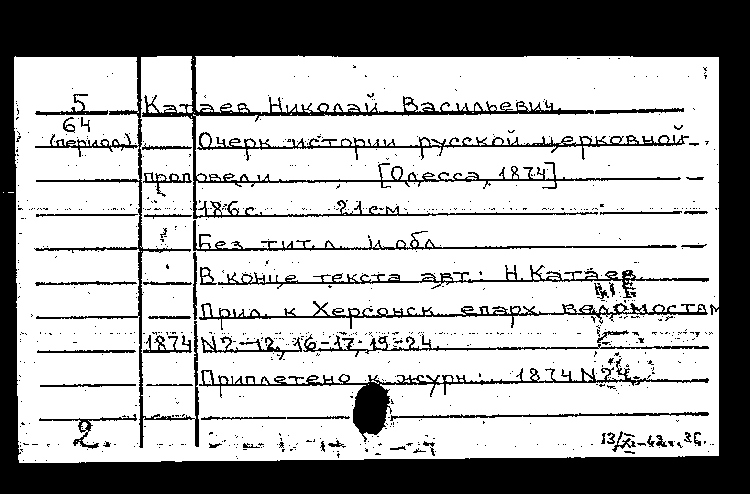 5 Катаев, Николай Васильевич.
64
(период.) Очерк истории русской церковной
проповеди. [Одесса, 1874].
186 с. 21 см.
Без тит. л. и обл.
В конце текста авт.: Н. Катаев
Прил. к Херсонск. епарх. ведомостям
1874 N 2-12, 16-17, 19-24.
Приплетено к журн.: 1874 N 24.
2.
13/XI-42г. ЗБ.